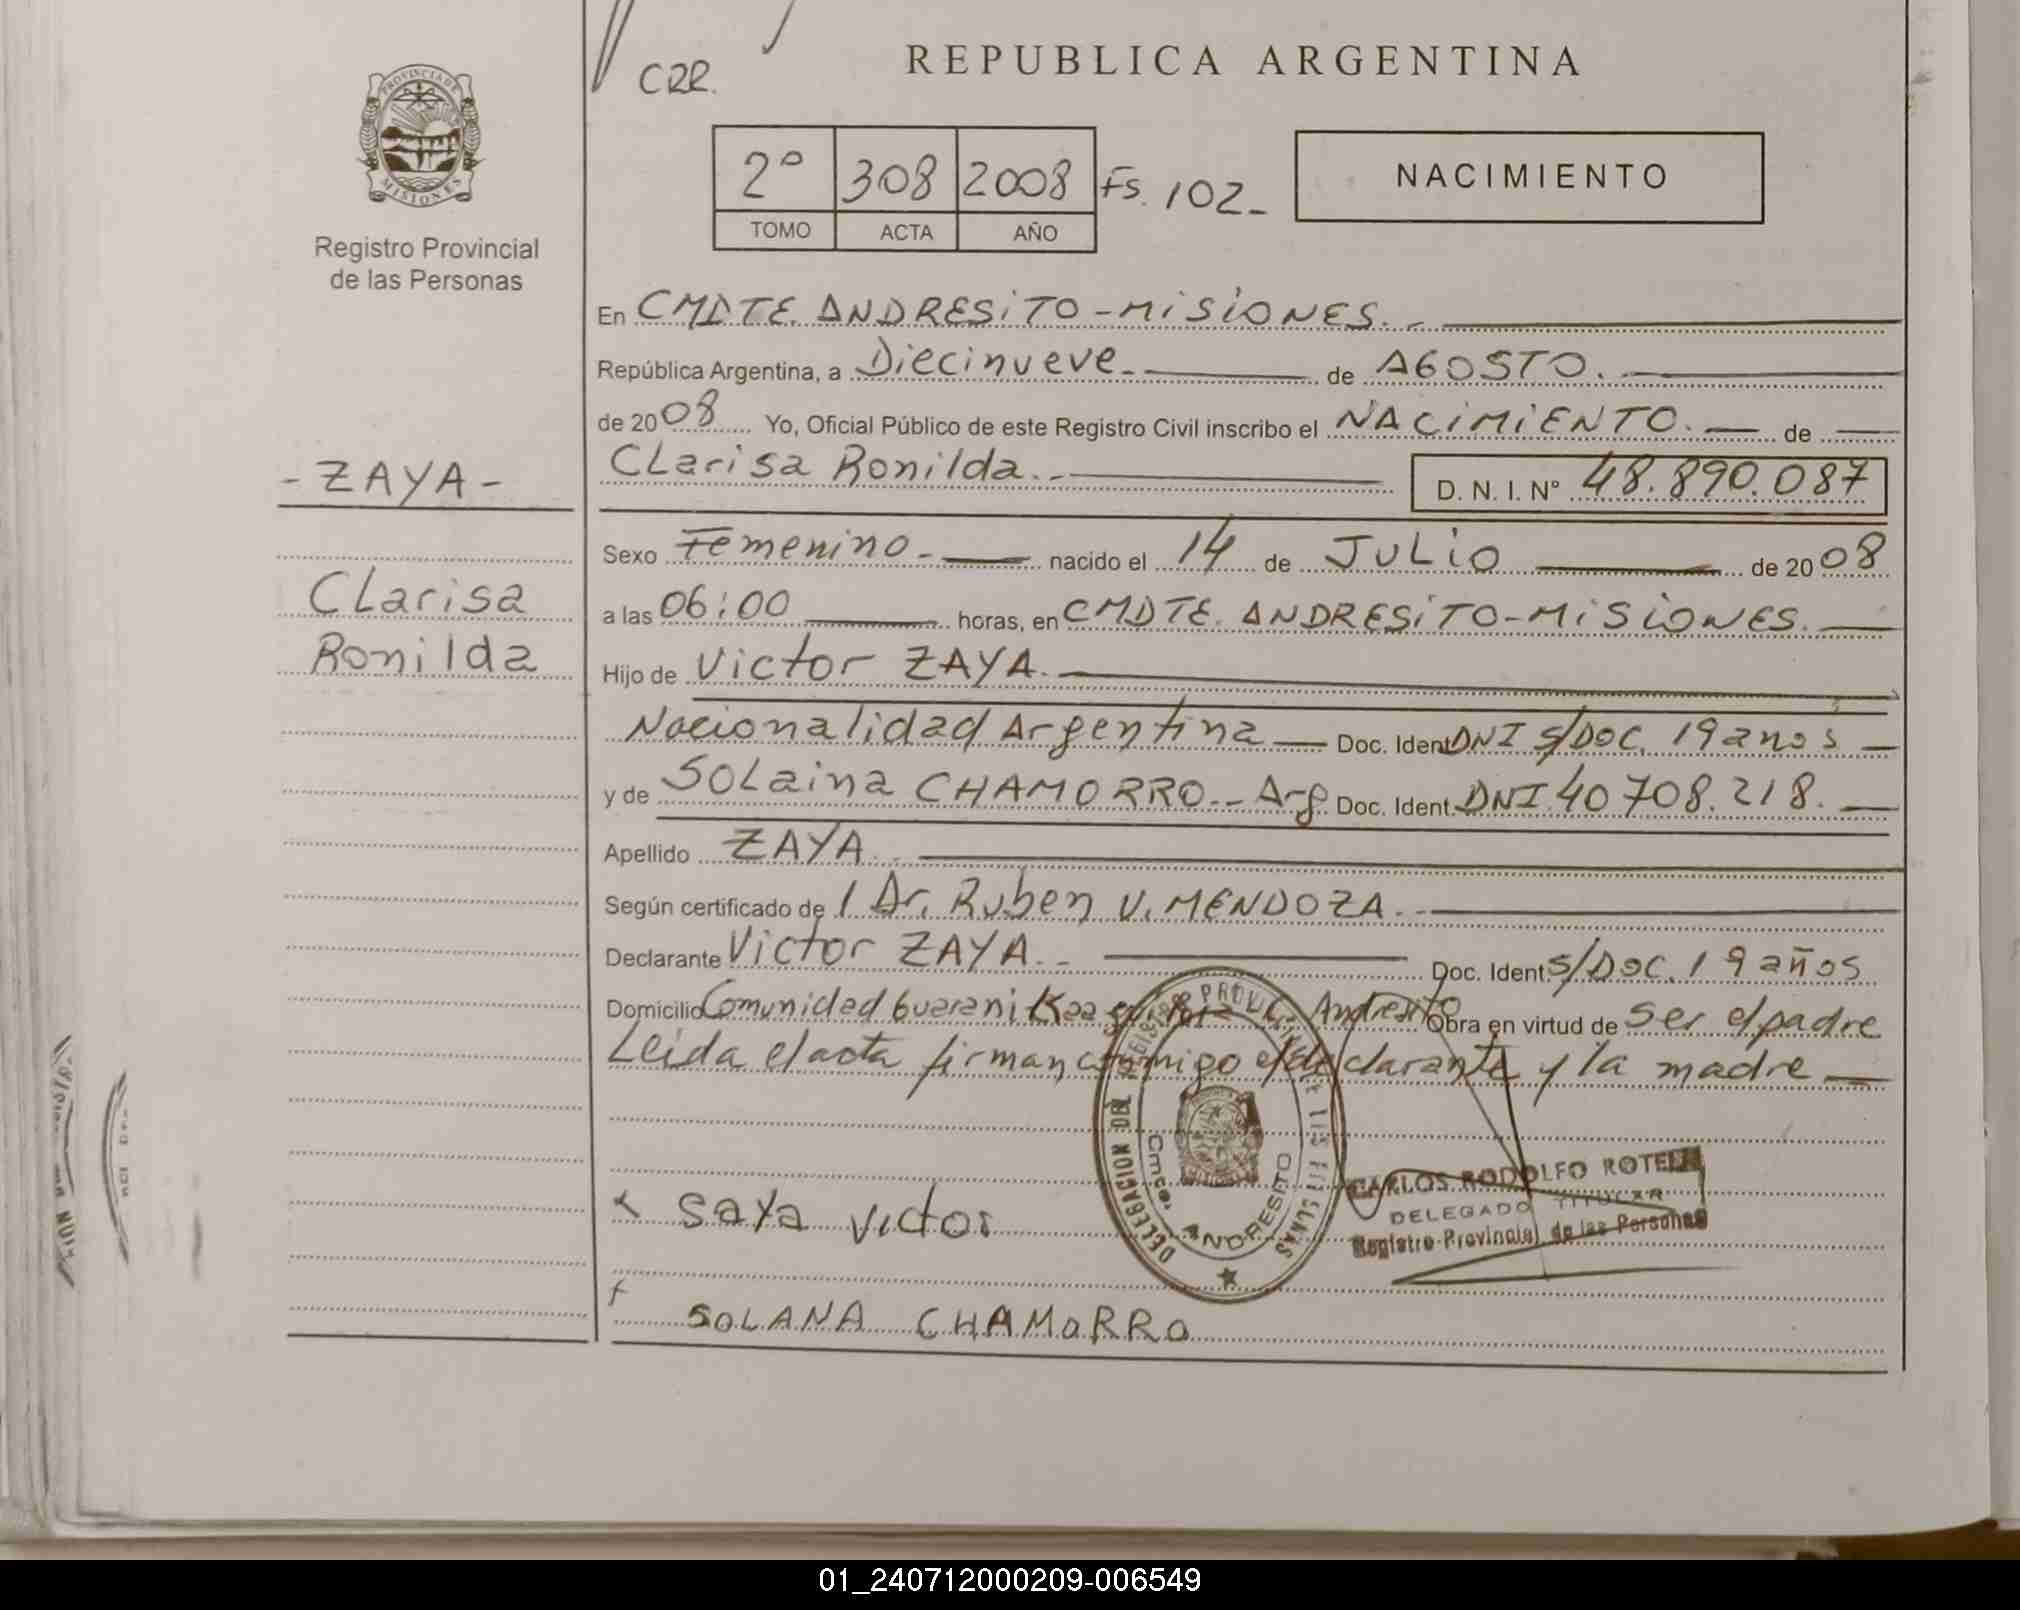 CRR.
REPUBLICA ARGENTINA
PROVINCIA DE
MISIONES
Registro Provincial
de las Personas
2º 308 2008 Fs. 102-
TOMO ACTA AÑO
NACIMIENTO
En CMDTE. ANDRESiTO - MiSiONES.-
República Argentina, a Diecinueve.- de AGOSTO.
de 2008 Yo, Oficial Público de este Registro Civil inscribo el NACiMiENTO. de
- ZAYA -
CLarisa Ronilda.- D. N. I. Nº 48.890.087
Sexo Femenino.- nacido el 14 de JULiO de 2008
CLarisa
Ronilda
a las 06:00 horas, en CMDTE. ANDRESiTO-MiSiONES.
Hijo de Victor ZAYA.
Nacionalidad Argentina Doc. Ident. DNI S/DOC. 19 anos
y de SOLaina CHAMORRO.- Arg. Doc. Ident. DNI 40708.218.
Apellido ZAYA.
Según certificado de 1 Dr. Ruben V. MENDOZA.-
Declarante Victor ZAYA.- Doc. Ident. S/DOC. 19 años
Domicilio Comunidad Guarani Andresito Obra en virtud de Ser el padre
Leida el acta firman conmigo el declarante y la madre
DELEGACION DEL REGISTRO PROVINCIAL DE LAS PERSONAS
Cmdte. ANDRESITO
CARLOS RODOLFO ROTELA
DELEGADO TITULAR
Registro Provincial de las Personas
x saya victor
SOLANA CHAMORRO
01_240712000209-006549